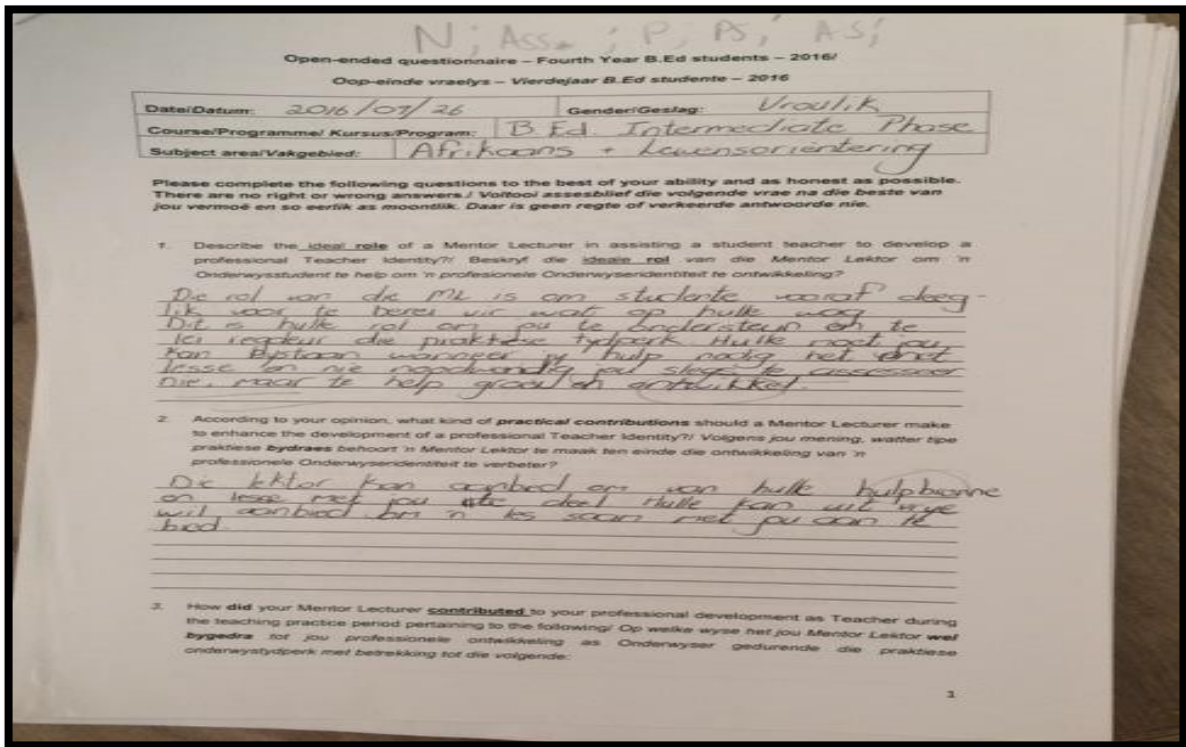 N; Ass. ; P; PS; AS;
Open-ended questionnaire – Fourth Year B.Ed students – 2016/
Oop-einde vraelys – Vierdejaar B.Ed studente – 2016
Date/Datum: 2016/07/26 Gender/Geslag: Vroulik
Course/Programme/ Kursus/Program: B.Ed. Intermediate Phase
Subject area/Vakgebied: Afrikaans + Lewensoriëntering
Please complete the following questions to the best of your ability and as honest as possible.
There are no right or wrong answers./ Voltooi assesblief die volgende vrae na die beste van
jou vermoë en so eerlik as moontlik. Daar is geen regte of verkeerde antwoorde nie.
1. Describe the ideal role of a Mentor Lecturer in assisting a student teacher to develop a
professional Teacher Identity?/ Beskryf die ideale rol van die Mentor Lektor om 'n
Onderwysstudent te help om 'n profesionele Onderwyseridentiteit te ontwikkeling?
Die rol van die ML is om studente vooraf deeg-
lik voor te berei vir wat op hulle wag
Dit is hulle rol om jou te ondersteun en te
lei regdeur die praktiese tydperk. Hulle moet jou
kan bystaan wanneer jy hulp nodig het met
lesse en nie noodwendig jou slegs te assesseer
nie, maar te help groei en ontwikkel.
2. According to your opinion, what kind of practical contributions should a Mentor Lecturer make
to enhance the development of a professional Teacher Identity?/ Volgens jou mening, watter tipe
praktiese bydraes behoort 'n Mentor Lektor te maak ten einde die ontwikkeling van 'n
professionele Onderwyseridentiteit te verbeter?
Die lektor kan aanbied om van hulle hulpbronne
en lesse met jou te deel Hulle kan uit vrye
wil aanbied om 'n les saam met jou aan te
bied.
3. How did your Mentor Lecturer contributed to your professional development as Teacher during
the teaching practice period pertaining to the following/ Op welke wyse het jou Mentor Lektor wel
bygedra tot jou professionele ontwikkeling as Onderwyser gedurende die praktiese
onderwystydperk met betrekking tot die volgende:
1